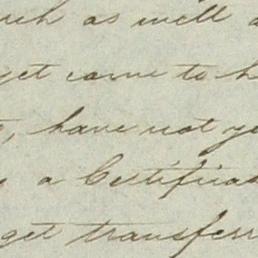 such as well a
yet come to h
have not ye
a Certifica
get transferr